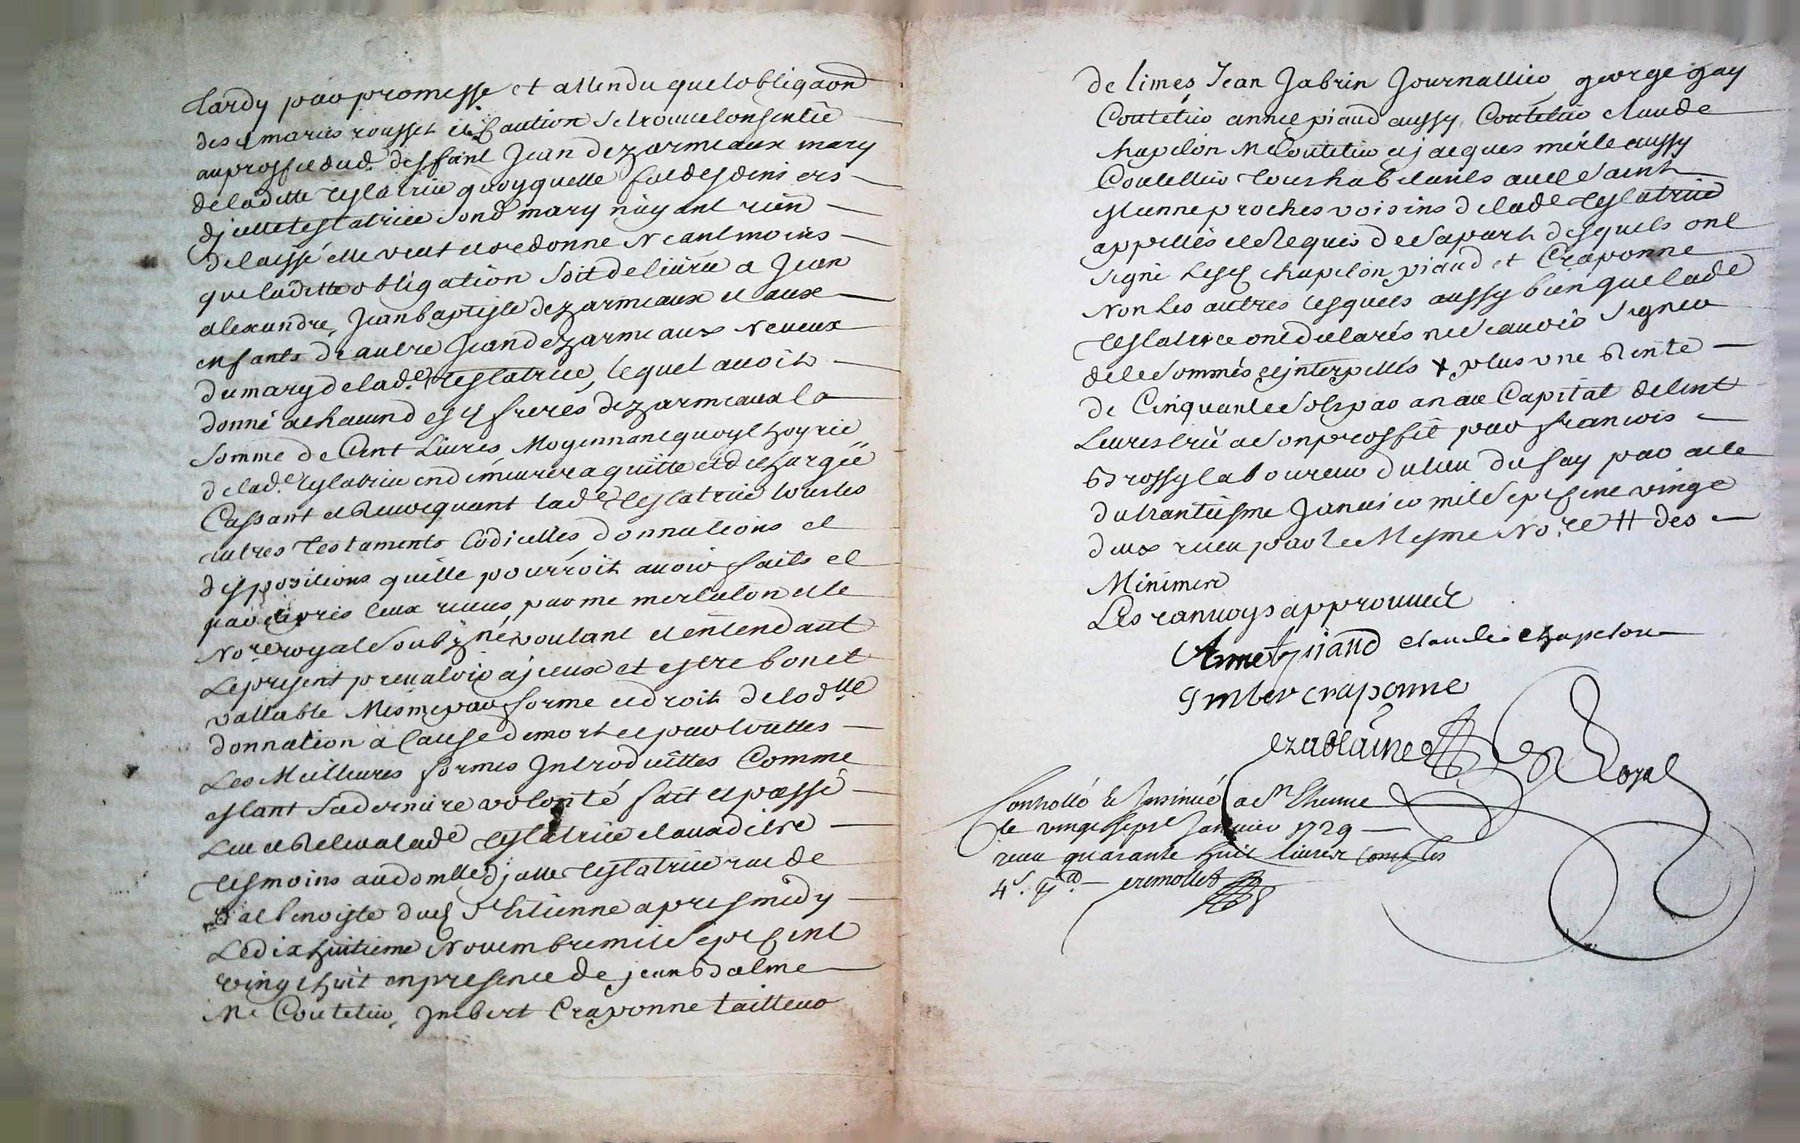 tardy par promesse et attendu que lobligaôn
desd maries rousset et caution se trouve consentie
au proffit dud. deffunt Jean dezarmeaux mary
de laditte testatrice quoyquelle fut des deniers
dycelle testatrice sond mary n'ayant rien
delaissé elle veut et ordonne Neantmoins
que laditte obligation soit delivrée a Jean
alexandre, Jean baptiste dezarmeaux et aux
enfants de autre Jean dezarmeaux Neveux
du mary de lad.e testatrice, lequel avoit
donné a chacun desd freres dezarmeaux la
somme de Cent Livres Moyennant quoy lhoyrie
de lad.e testatrice en demeurera quitte et dechargée
Cassant et Revocquant lad.e testatrice tous les
autres testaments Codicilles donnations et
dispositions quelle pourroit avoir faits et
par
No.re royal soubz.né voulant et entendant
le present prevaloir a jceux et estre bon et
vallable Mesme par forme et droit de lad.lle
donnation a Cause de mort et par touttes
Les Meilleures formes Introduittes Comme
estant sa derniere volonté fait et passé
Leu et Releu a lad.e testatrice et aux
tesmoins au domlle djcelle testatrice rue de
benoiste dud S.t Etienne apres midy
Le dix huitieme Novembre mil sept Cent
vingt huit en presence de jean Balme
M.e Coutelier, Jmbert Craponne tailleur
de limes Jean Jabrin Journallier george gay
Coutelier annet piaud aussy Coutelier claude
chapelon M.e Coutelier et jacques merle aussy
Coutellier tous habitants aud Saint
Etienne proches voisins de lad.e testatrice
appellés et Requis de sa part desquels ont
signé Lesd chapelon piaud et Craponne
Non Les autres lesquels aussy bien que lad.e
testatrice ont declarés ne scavoir signer
de ce sommés et jnterpellés + plus une Rente
de Cinquante sols par an au Capital de Cent
Livres crée a son proffit par francois
Brossy laboureur du lieu du fay par acte
du trantiesme Janvier mil sept cent vingt
deux receu par le Mesme No.re # des
Minimes
Les ranvoys approuvés
Annet piaud claude chapelon
Jmbert craponne
Royal
Controllé & Insinué a S.t Etienne
le vingt sept Janvier 1729
receu quarante huit livres
4 s.